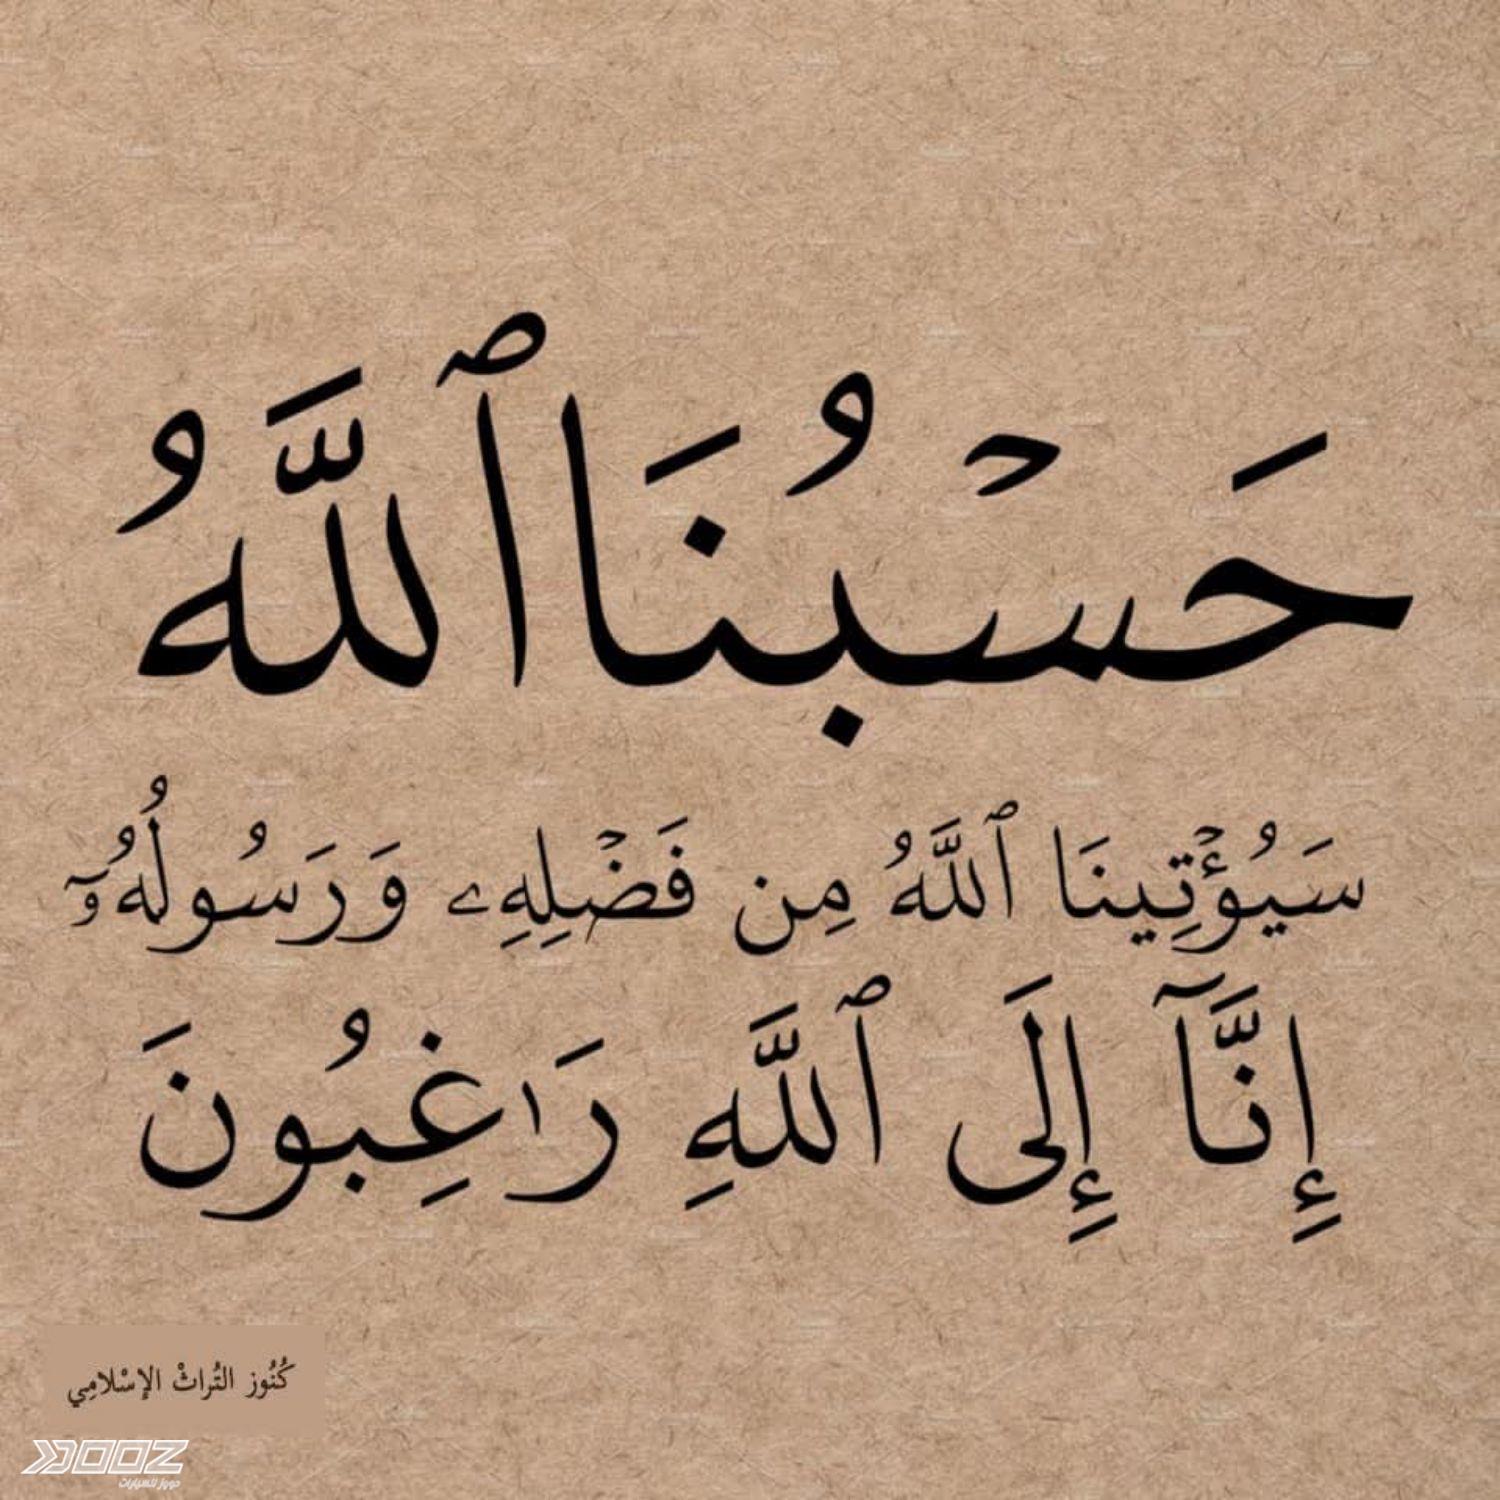 حَسۡبُنَا ٱللَّهُ
سَيُؤۡتِينَا ٱللَّهُ مِن فَضۡلِهِۦ وَرَسُولُهُۥٓ
إِنَّآ إِلَى ٱللَّهِ رَٰغِبُونَ
كُنُوز التُراثْ الإسْلامِي
DOOZ
دووز للسيارات